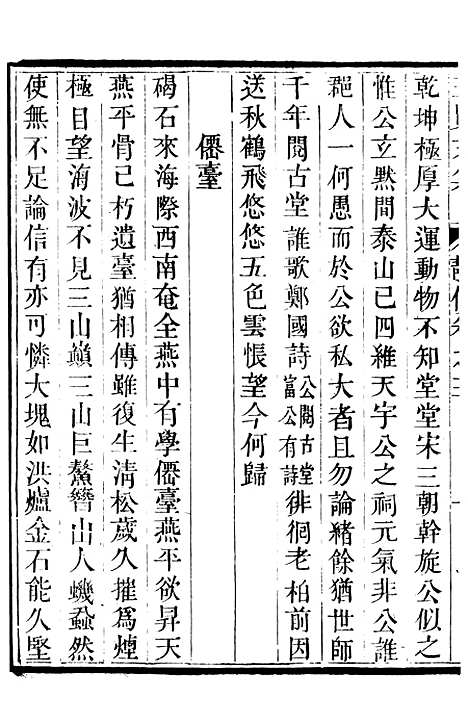 乾坤極厚大運動物不知堂堂宋三朝幹旋公似之
惟公立默間泰山已四維天宇公之祠元氣非公誰
郒人一何愚而於公欲私大者且勿論緒餘猶世師
千年閱古堂誰歌鄭國詩公閱古堂富公有詩徘徊老柏前因
送秋鶴飛悠悠五色雲悵望今何歸
僊臺
碣石來海際西南奄全燕中有學僊臺燕平欲昇天
燕平骨已朽遺臺猶相傳雖復生清松歲久摧為煙
極目望海波不見三山巔三山巨鰲簪出人蟣蝨然
使無不足論信有亦可憐大塊如洪爐金石能久堅